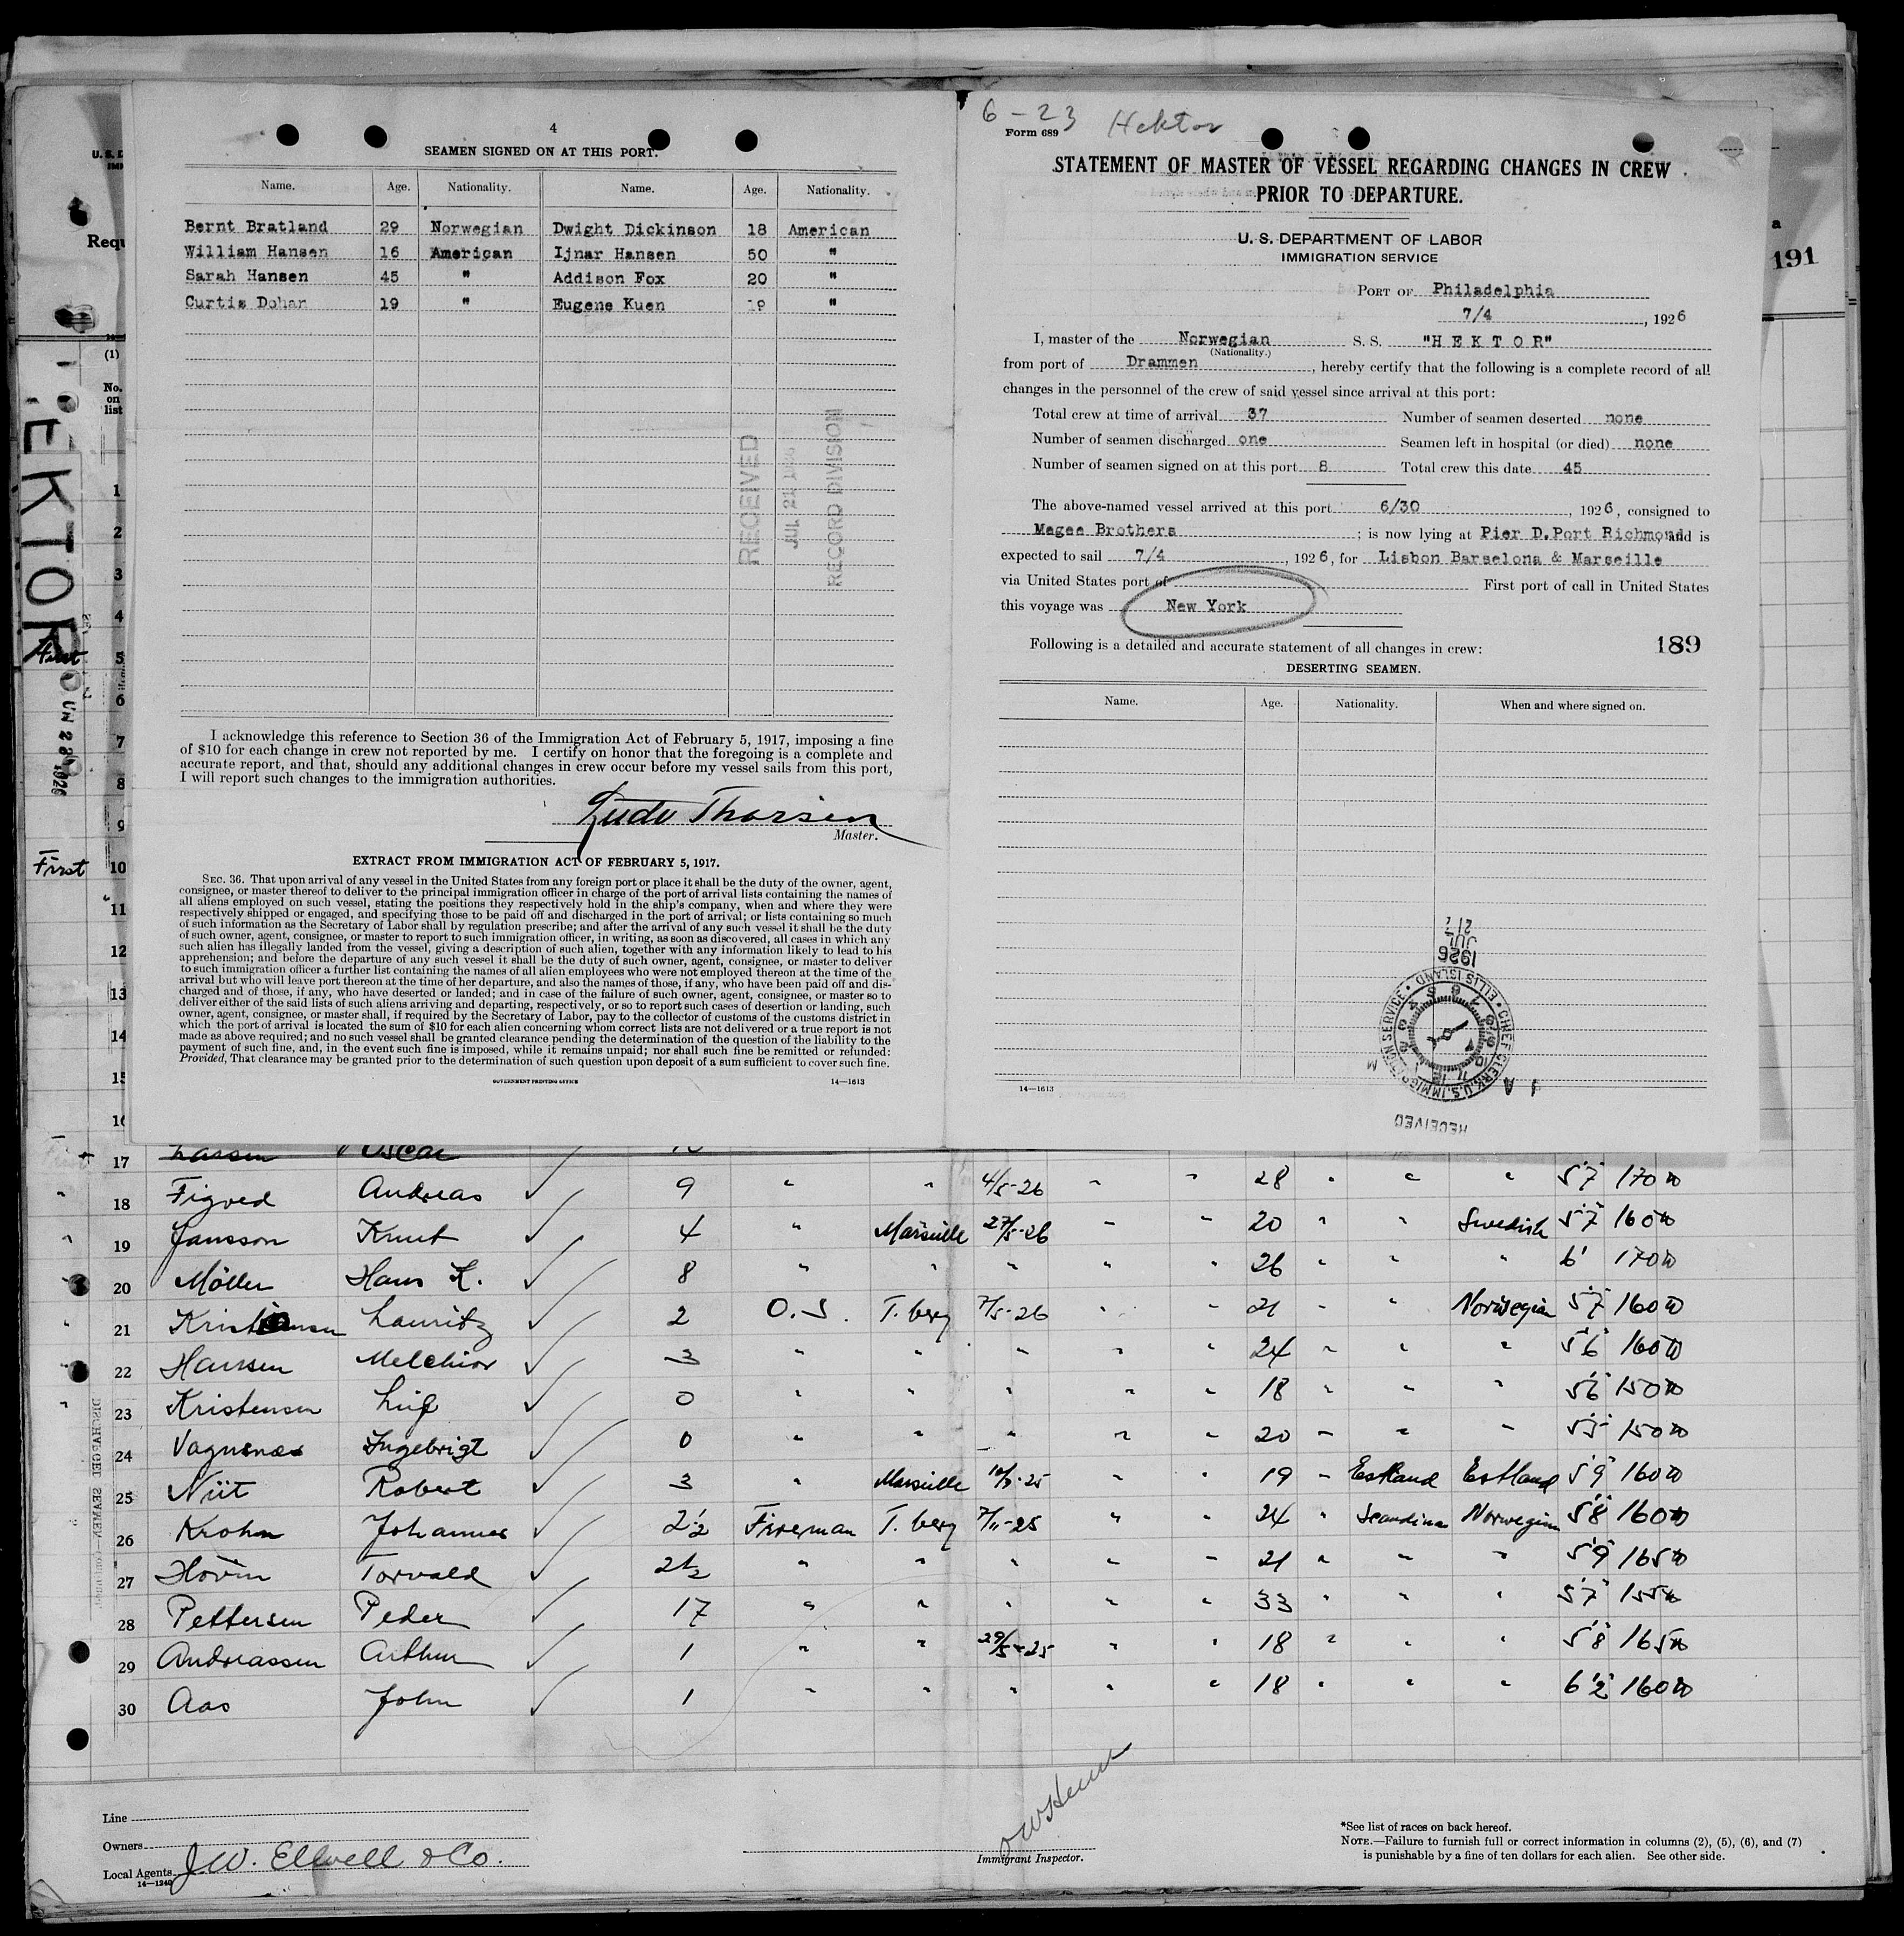 4
SEAMEN SIGNED ON AT THIS PORT.
Name. Age. Nationality. Name. Age. Nationality.
Bernt Bratland 29 Norwegian Dwight Dickinson 18 American
William Hansen 16 American Ijnar Hansen 50 "
Sarah Hansen 45 " Addison Fox 20 "
Curtis Dohan 19 " Eugene Kuen 19 "
RECEIVED
JUL 21 1926
RECORD DIVISION
I acknowledge this reference to Section 36 of the Immigration Act of February 5, 1917, imposing a fine
of $10 for each change in crew not reported by me. I certify on honor that the foregoing is a complete and
accurate report, and that, should any additional changes in crew occur before my vessel sails from this port,
I will report such changes to the immigration authorities.
Thorsen
Master.
EXTRACT FROM IMMIGRATION ACT OF FEBRUARY 5, 1917.
SEC. 36. That upon arrival of any vessel in the United States from any foreign port or place it shall be the duty of the owner, agent,
consignee, or master thereof to deliver to the principal immigration officer in charge of the port of arrival lists containing the names of
all aliens employed on such vessel, stating the positions they respectively hold in the ship's company, when and where they were
respectively shipped or engaged, and specifying those to be paid off and discharged in the port of arrival; or lists containing so much
of such information as the Secretary of Labor shall by regulation prescribe; and after the arrival of any such vessel it shall be the duty
of such owner, agent, consignee, or master to report to such immigration officer, in writing, as soon as discovered, all cases in which any
such alien has illegally landed from the vessel, giving a description of such alien, together with any information likely to lead to his
apprehension; and before the departure of any such vessel it shall be the duty of such owner, agent, consignee, or master to deliver
to such immigration officer a further list containing the names of all alien employees who were not employed thereon at the time of the
arrival but who will leave port thereon at the time of her departure, and also the names of those, if any, who have been paid off and dis-
charged and of those, if any, who have deserted or landed; and in case of the failure of such owner, agent, consignee, or master so to
deliver either of the said lists of such aliens arriving and departing, respectively, or so to report such cases of desertion or landing, such
owner, agent, consignee, or master shall, if required by the Secretary of Labor, pay to the collector of customs of the customs district in
which the port of arrival is located the sum of $10 for each alien concerning whom correct lists are not delivered or a true report is not
made as above required; and no such vessel shall be granted clearance pending the determination of the question of the liability to the
payment of such fine, and, in the event such fine is imposed, while it remains unpaid; nor shall such fine be remitted or refunded:
Provided, That clearance may be granted prior to the determination of such question upon deposit of a sum sufficient to cover such fine.
GOVERNMENT PRINTING OFFICE 14—1613
6-23 Hektor
Form 689
STATEMENT OF MASTER OF VESSEL REGARDING CHANGES IN CREW
PRIOR TO DEPARTURE.
U. S. DEPARTMENT OF LABOR
IMMIGRATION SERVICE
PORT OF Philadelphia
7/4, 1926
I, master of the Norwegian S. S. "HEKTOR"
(Nationality.)
from port of Drammen, hereby certify that the following is a complete record of all
changes in the personnel of the crew of said vessel since arrival at this port:
Total crew at time of arrival 37 Number of seamen deserted none
Number of seamen discharged one Seamen left in hospital (or died) none
Number of seamen signed on at this port 8 Total crew this date 45
The above-named vessel arrived at this port 6/30, 1926, consigned to
Magee Brothers; is now lying at Pier D.Port Richmond and is
expected to sail 7/4, 1926, for Lisbon Barselona & Marseille
via United States port of First port of call in United States
this voyage was New York
Following is a detailed and accurate statement of all changes in crew: 189
DESERTING SEAMEN.
Name. Age. Nationality. When and where signed on.
1926
JUL
21
CHIEF CLERK, U.S. IMMIGRATION SERVICE • ELLIS ISLAND •
RECEIVED
14—1613
191
Requ
(1)
No.
on
list
EKTOR
First
UN 28 1926
First
1
2
3
4
5
6
7
8
9
10
11
12
13
14
15
16
17 Larsen Oscar
18 Figved Andreas 9 " " 4/5-26 " " 28 " " " 5'7" 170
19 Jansson Knut 4 " Marseille 27/5-26 " " 20 " " Swedish 5'7" 160
20 Möller Hans K. 8 " " " " " 26 " " " 6' 170
21 Lauritz 2 O.S. T.berg 7/5-26 " " 21 " " Norwegian 5'7" 160
22 Hansen Melchior 3 " " " " " 24 " " " 5'6" 160
23 Kristensen Leif 0 " " " " " 18 " " " 5'6" 150
24 Vagnsnæs Ingebrigt 0 " " " " " 20 " " " 5'5" 150
25 Niit Robert 3 " Marseille " " 19 " Estland Estland 5'9" 160
26 Krohn Johannes 2½ Fireman T.berg 7/11-25 " " 24 " Scandina Norwegian 5'8" 160
27 Hovin Torvald 2½ " " " " " 21 " " " 5'9" 165
28 Pettersen Peder 17 " " " " " 33 " " " 5'7" 155
29 Andreassen Arthur 1 " " 29/5-25 " " 18 " " " 5'8" 165
30 Aas John 1 " " " " " 18 " " " 6'2" 160
Line
Owners
Local Agents J.W. Ellwell & Co.
14—1240
Immigrant Inspector.
*See list of races on back hereof.
NOTE.—Failure to furnish full or correct information in columns (2), (5), (6), and (7)
is punishable by a fine of ten dollars for each alien. See other side.